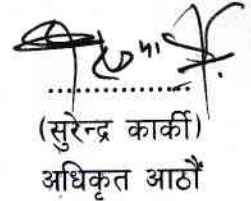 (सुरेन्द्र कार्की)
अधिकृत आठौं